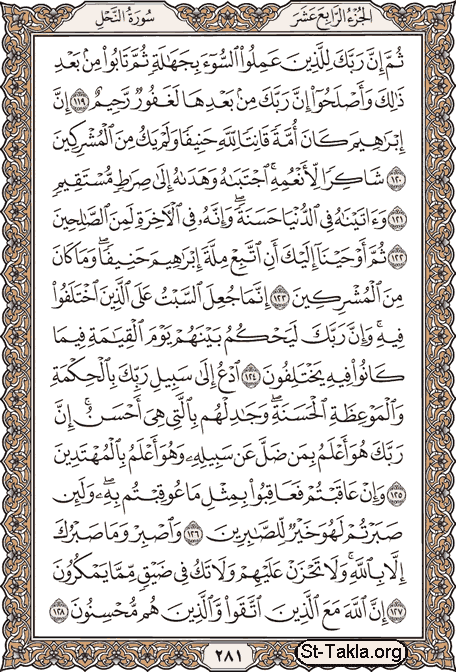 الجزء الرابع عشر
سورة النحل
ثُمَّ إِنَّ رَبَّكَ لِلَّذِينَ عَمِلُوا۟ ٱلسُّوٓءَ بِجَهَٰلَةٍ ثُمَّ تَابُوا۟ مِنۢ بَعْدِ
ذَٰلِكَ وَأَصْلَحُوٓا۟ إِنَّ رَبَّكَ مِنۢ بَعْدِهَا لَغَفُورٌ رَّحِيمٌ ١١٩ إِنَّ
إِبْرَٰهِيمَ كَانَ أُمَّةً قَانِتًا لِّلَّهِ حَنِيفًا وَلَمْ يَكُ مِنَ ٱلْمُشْرِكِينَ
١٢٠ شَاكِرًا لِّأَنْعُمِهِ ۚ ٱجْتَبَىٰهُ وَهَدَىٰهُ إِلَىٰ صِرَٰطٍ مُّسْتَقِيمٍ
١٢١ وَءَاتَيْنَٰهُ فِى ٱلدُّنْيَا حَسَنَةً ۖ وَإِنَّهُۥ فِى ٱلْءَاخِرَةِ لَمِنَ ٱلصَّٰلِحِينَ
١٢٢ ثُمَّ أَوْحَيْنَآ إِلَيْكَ أَنِ ٱتَّبِعْ مِلَّةَ إِبْرَٰهِيمَ حَنِيفًا ۖ وَمَا كَانَ
مِنَ ٱلْمُشْرِكِينَ ١٢٣ إِنَّمَا جُعِلَ ٱلسَّبْتُ عَلَى ٱلَّذِينَ ٱخْتَلَفُوا۟
فِيهِ ۚ وَإِنَّ رَبَّكَ لَيَحْكُمُ بَيْنَهُمْ يَوْمَ ٱلْقِيَٰمَةِ فِيمَا
كَانُوا۟ فِيهِ يَخْتَلِفُونَ ١٢٤ ٱدْعُ إِلَىٰ سَبِيلِ رَبِّكَ بِٱلْحِكْمَةِ
وَٱلْمَوْعِظَةِ ٱلْحَسَنَةِ ۖ وَجَٰدِلْهُم بِٱلَّتِى هِىَ أَحْسَنُ ۚ إِنَّ
رَبَّكَ هُوَ أَعْلَمُ بِمَن ضَلَّ عَن سَبِيلِهِۦ ۖ وَهُوَ أَعْلَمُ بِٱلْمُهْتَدِينَ
١٢٥ وَإِنْ عَاقَبْتُمْ فَعَاقِبُوا۟ بِمِثْلِ مَا عُوقِبْتُم بِهِۦ ۖ وَلَئِن
صَبَرْتُمْ لَهُوَ خَيْرٌ لِّلصَّٰبِرِينَ ١٢٦ وَٱصْبِرْ وَمَا صَبْرُكَ
إِلَّا بِٱللَّهِ ۚ وَلَا تَحْزَنْ عَلَيْهِمْ وَلَا تَكُ فِى ضَيْقٍ مِّمَّا يَمْكُرُونَ
١٢٧ إِنَّ ٱللَّهَ مَعَ ٱلَّذِينَ ٱتَّقَوا۟ وَّٱلَّذِينَ هُم مُّحْسِنُونَ ١٢٨
٢٨١
St-Takla.org